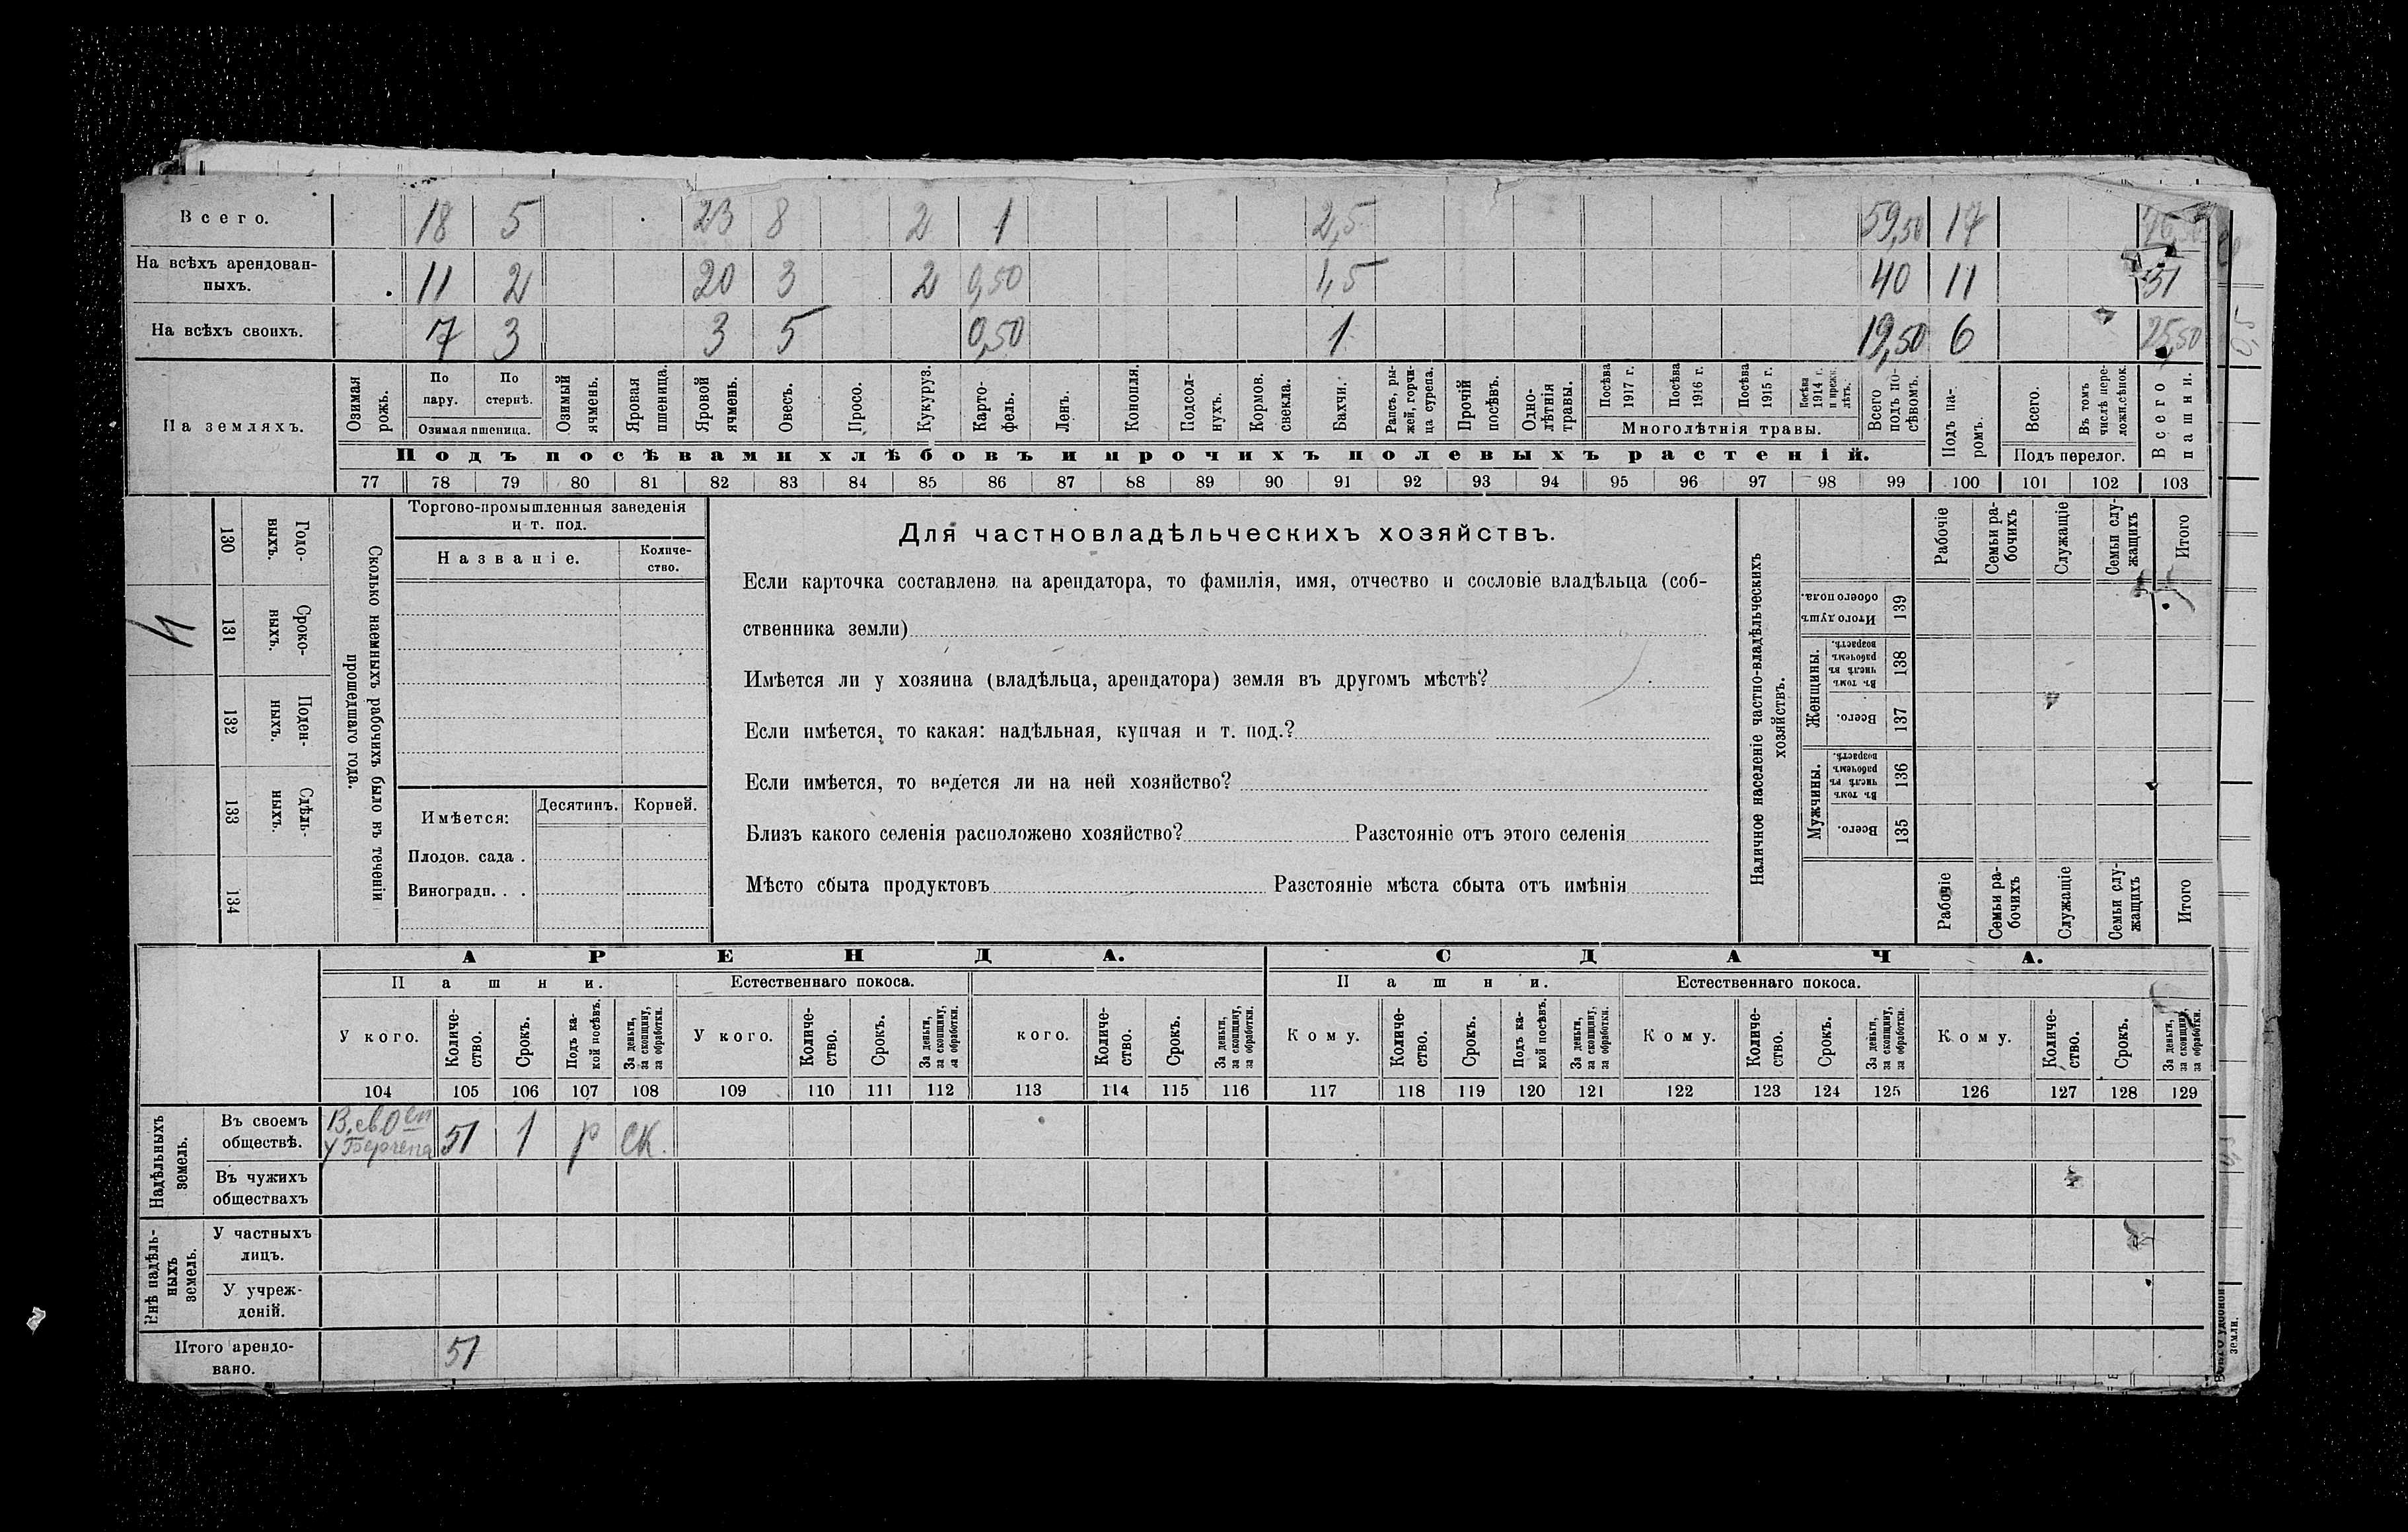 Всего. 18 5 23 8 2 1 2,5 59,50 17
На всѣхъ арендован-
ныхъ. 11 2 20 3 2 0,50 1,5 40 11 51
На всѣхъ своихъ. 7 3 3 5 0,50 1 19,50 6 25,50
На земляхъ.
Озимая рожь.
По пару.
По стернѣ.
Озимая пшеница.
Озимый ячмень.
Яровая пшеница.
Яровой ячмень.
Овесъ.
Просо.
Кукуруз.
Карто-
фель.
Ленъ.
Конопля.
Подсол-
нухъ.
Кормов. свекла.
Бахчи.
Рапсъ, ры-
жей, горчи-
ца сурепа.
Прочій посѣвъ.
Одно-
лѣтнія травы.
Посѣва 1917 г.
Посѣва 1916 г.
Посѣва 1915 г.
Посѣва 1914 г. и прежн. лѣтъ.
Многолѣтнія травы.
Всего подъ по-
сѣвомъ.
Подъ па-
ромъ.
Всего.
Въ томъ числѣ пере-
ложн. сѣнок.
Подъ перелог.
Всего пашни.
Подъ посѣвами хлѣбовъ и прочихъ полевыхъ растеній.
77 78 79 80 81 82 83 84 85 86 87 88 89 90 91 92 93 94 95 96 97 98 99 100 101 102 103
130 Годо-
выхъ.
131 Сроко-
выхъ.
132 Поден-
ныхъ.
133 Сдѣль-
ныхъ.
134
Сколько наемныхъ рабочихъ было въ теченіи
прошедшаго года.
Торгово-промышленныя заведенія
и т. под.
Названіе.
Количе-
ство.
Имѣется:
Десятинъ. Корней.
Плодов. сада .
Виноградн. . .
Для частновладѣльческихъ хозяйствъ.
Если карточка составлена на арендатора, то фамилія, имя, отчество и сословіе владѣльца (соб-
ственника земли)
Имѣется ли у хозяина (владѣльца, арендатора) земля въ другомъ мѣстѣ?
Если имѣется, то какая: надѣльная, купчая и т. под.?
Если имѣется, то ведется ли на ней хозяйство?
Близъ какого селенія расположено хозяйство? Разстояніе отъ этого селенія
Мѣсто сбыта продуктовъ Разстояніе мѣста сбыта отъ имѣнія
Наличное населеніе частно-владѣльческихъ
хозяйствъ.
Рабочіе
Семьи ра-
бочихъ
Служащіе
Семьи слу-
жащихъ
Итого
Итого душъ обоего пола. 139
Женщины.
Въ томъ числѣ въ рабочемъ возрастѣ. 138
Всего. 137
Мужчины.
Въ томъ числѣ въ рабочемъ возрастѣ. 136
Всего. 135
Рабочіе
Семьи ра-
бочихъ
Служащіе
Семьи слу-
жащихъ
Итого
АРЕНДА. СДАЧА.
Пашни. Естественнаго покоса. Пашни. Естественнаго покоса.
У кого.
Количе-
ство.
Срокъ.
Подъ ка-
кой посѣвъ.
За деньги, за скопщину, за обработки.
У кого.
Количе-
ство.
Срокъ.
За деньги, за скопщину, за обработки.
кого.
Количе-
ство.
Срокъ.
За деньги, за скопщину, за обработки.
Кому.
Количе-
ство.
Срокъ.
Подъ ка-
кой посѣвъ.
За деньги, за скопщину, за обработки.
Кому.
Количе-
ство.
Срокъ.
За деньги, за скопщину, за обработки.
Кому.
Количе-
ство.
Срокъ.
За деньги, за скопщину, за обработки.
104 105 106 107 108 109 110 111 112 113 114 115 116 117 118 119 120 121 122 123 124 125 126 127 128 129
Надѣльныхъ
земель.
Въ своемъ
обществѣ. 51 1 р ск.
Въ чужихъ
обществахъ
Внѣ надѣль-
ныхъ
земель.
У частныхъ
лицъ.
У учреж-
деній.
Итого арендо-
вано. 51
земли.